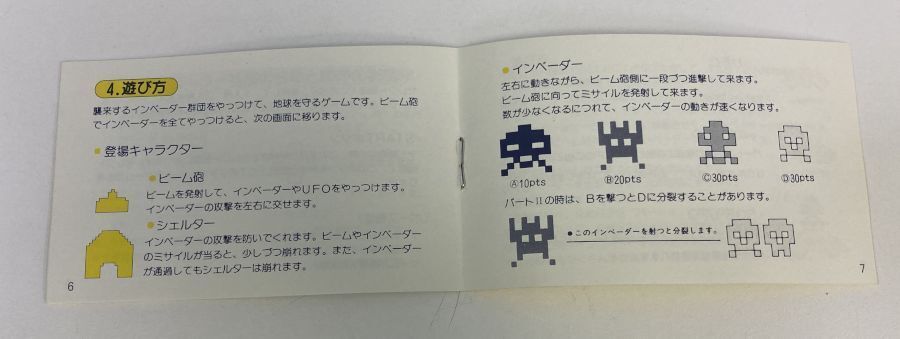 4.遊び方
襲来するインベーダー群団をやっつけて、地球を守るゲームです。ビーム砲
でインベーダーを全てやっつけると、次の画面に移ります。
●登場キャラクター
●ビーム砲
ビームを発射して、インベーダーやUFOをやっつけます。
インベーダーの攻撃を左右に交せます。
●シェルター
インベーダーの攻撃を防いでくれます。ビームやインベーダー
のミサイルが当ると、少しづつ崩れます。また、インベーダー
が通過してもシェルターは崩れます。
6
●インベーダー
左右に動きながら、ビーム砲側に一段づつ進撃して来ます。
ビーム砲に向ってミサイルを発射して来ます。
数が少なくなるにつれて、インベーダーの動きが速くなります。
Ⓐ10pts Ⓑ20pts Ⓒ30pts Ⓓ30pts
パートⅡの時は、Bを撃つとDに分裂することがあります。
●このインベーダーを射つと分裂します。
7